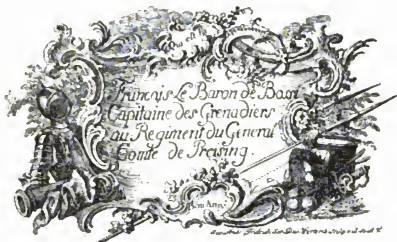 François Le Baron de Bassi
Capitaine des Grenadiers
au Regiment du General
Comte de Preising.